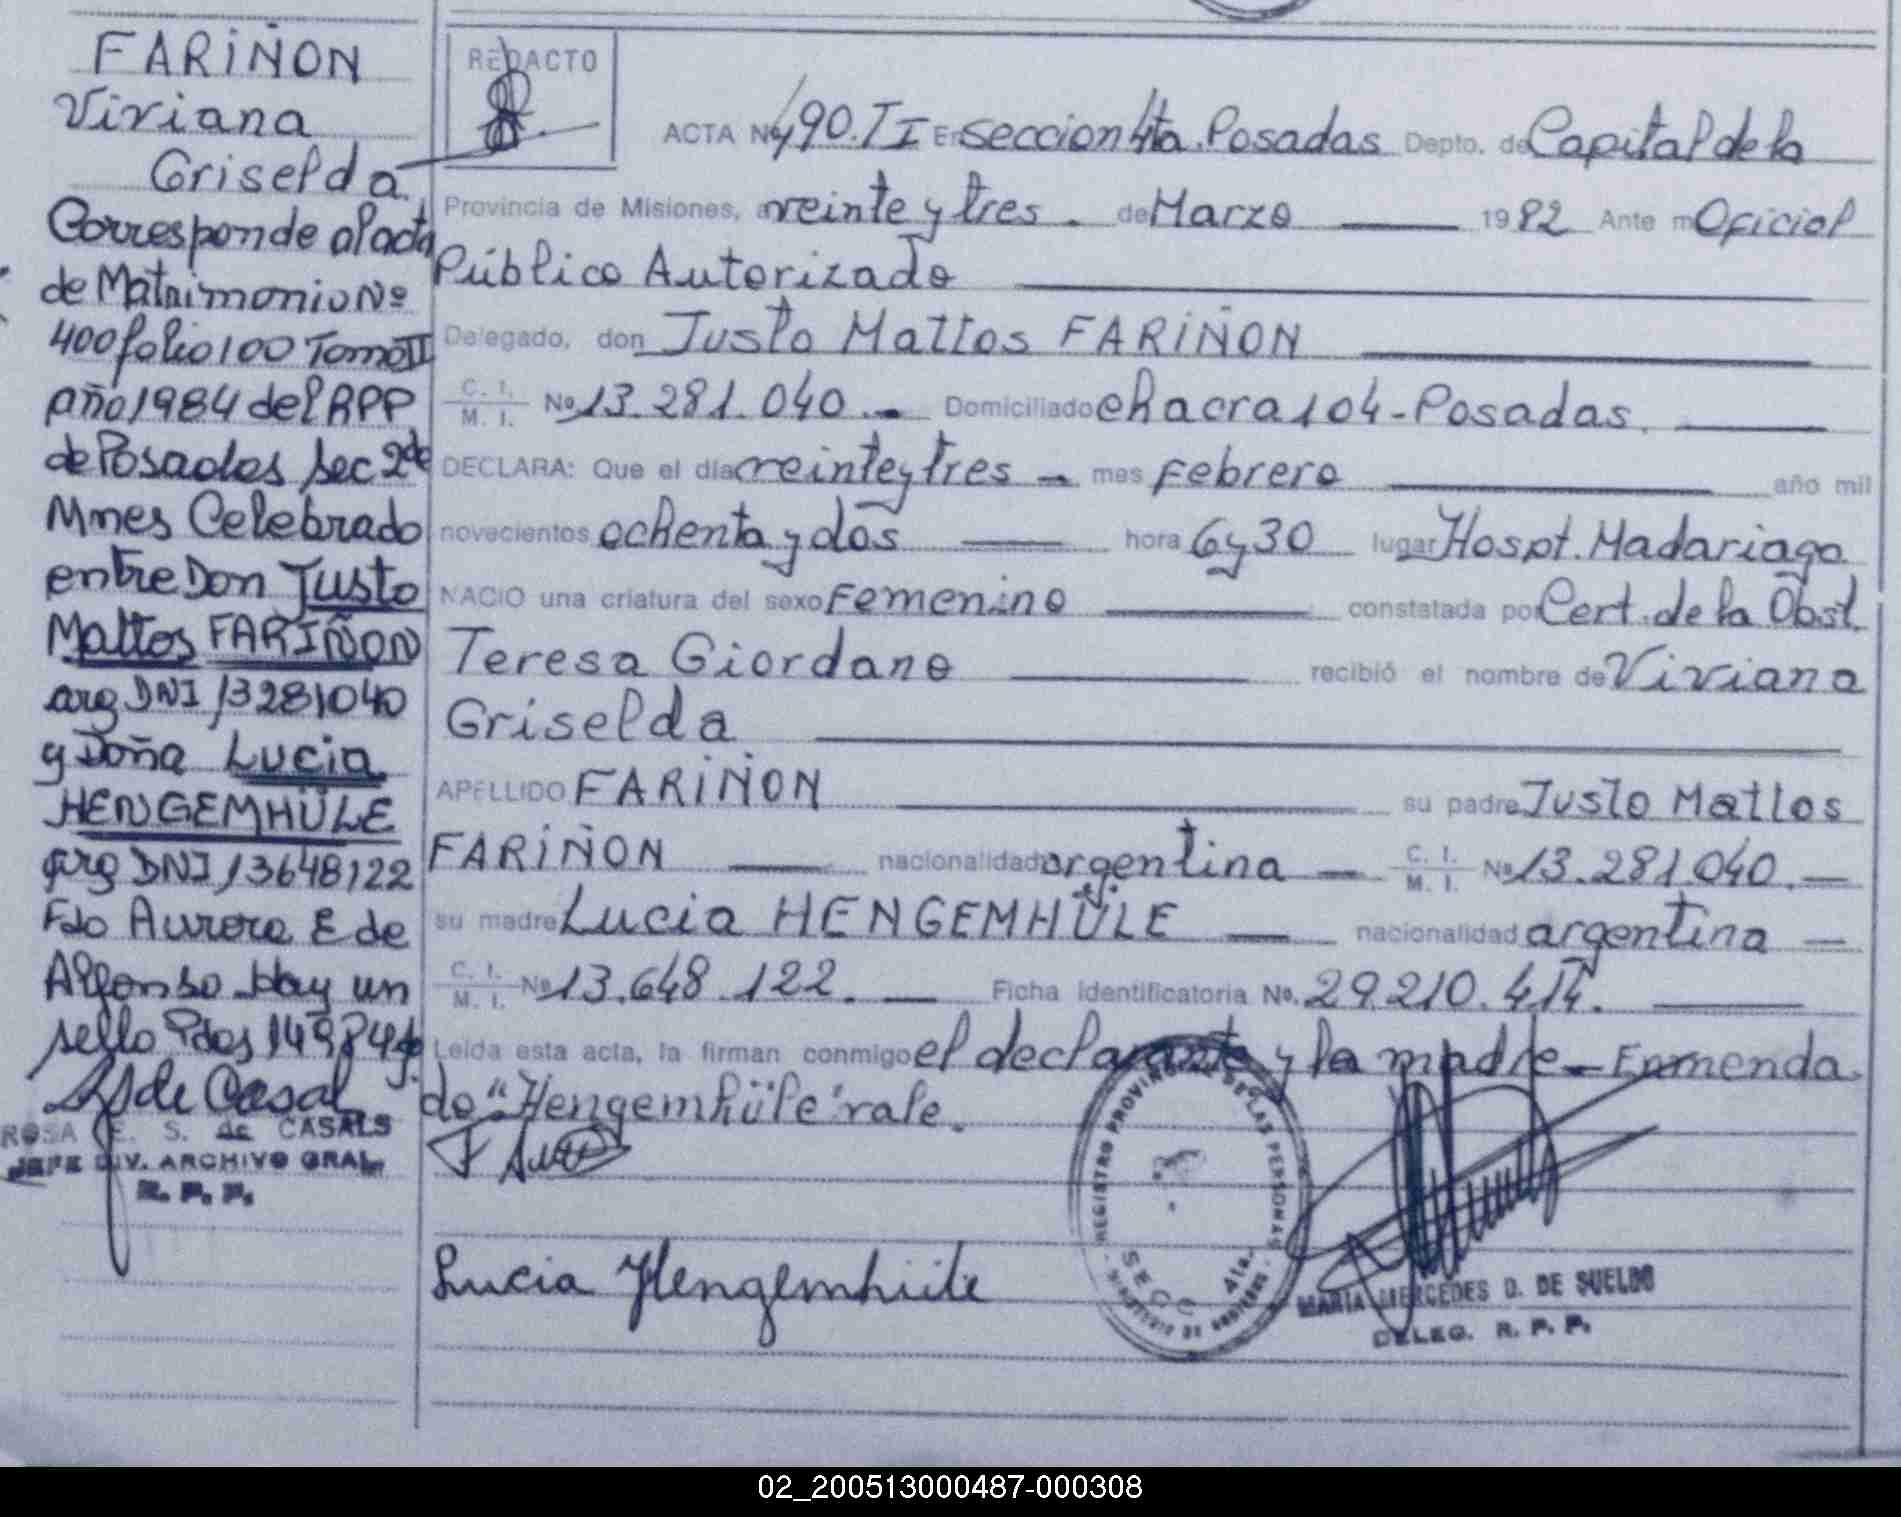 FARIÑON
Viviana
Griselda
Corresponde al acta
de Matrimonio Nº
400 folio 100 Tomo II
año 1984 del RPP
de Posadas Sec 2da
Mnes Celebrado
entre Don Justo
Mattos FARIÑON
arg DNI 13281040
y Doña Lucia
HENGEMHÜLE
arg DNI 13648122
Fdo Aurora E de
Alfonso Hay un
sello Pdas
de Casal
ROSA E. S. de CASALS
JEFE DIV. ARCHIVO GRAL.
R. P. P.
REDACTO
ACTA Nº 490. TI En Seccion 4ta. Posadas Depto. de Capital de la
Provincia de Misiones, a veinte y tres. de Marzo 1982 Ante mi Oficial
Público Autorizado
Delegado, don Justo Mattos FARIÑON
C. I.
M. I. Nº 13.281.040. Domiciliado chacra 104-Posadas.
DECLARA: Que el día veinte y tres mes Febrero año mil
novecientos ochenta y dos hora 6y30 lugar Hospt. Madariaga
NACIO una criatura del sexo Femenino constatada por Cert. de la Obst.
Teresa Giordano recibió el nombre de Viviana
Griselda
APELLIDO FARIÑON su padre Justo Mattos
FARIÑON nacionalidad argentina C. I.
M. I. Nº 13.281.040.
su madre Lucia HENGEMHÜLE nacionalidad argentina
C. I.
M. I. Nº 13.648.122. Ficha Identificatoria No. 29.210.414.
Leída esta acta, la firman conmigo el declarante y la madre-Enmenda
do "Hengemhüle" vale.
Lucia Hengemhüle
REGISTRO PROVINCIAL DE LAS PERSONAS
SECC 4ta.
MINISTERIO DE GOBIERNO
MARIA MERCEDES D. DE SUELDO
DELEG. R. P. P.
02_200513000487-000308